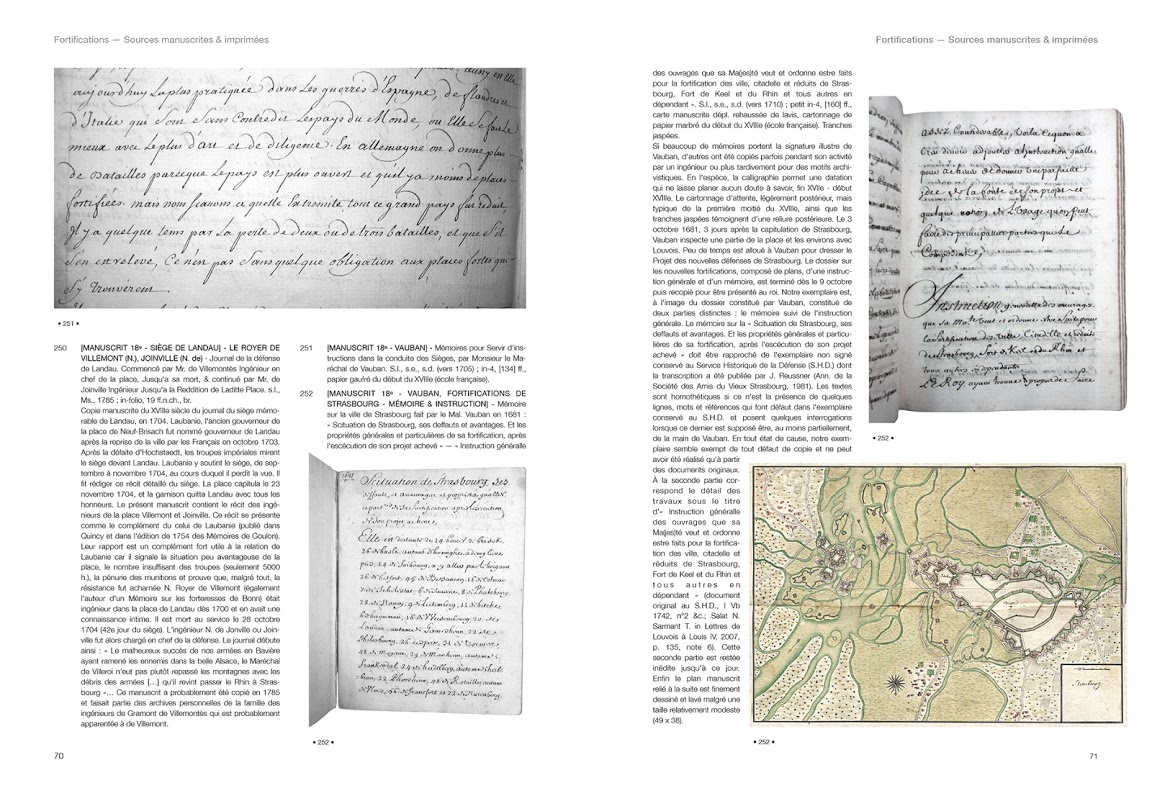 Fortifications — Sources manuscrites & imprimées
aujourdhuy la plus pratiquée dans les guerres d'Espagne, de flandres et
d'Italie qui sont sans Contredit les pays du Monde, ou Elle se fait le
mieux avec le plus d'art et de diligence. En allemagne on donne plus
de Batailles parceque le pays est plus ouvert et quil y a moins de places
fortifiées. mais nous sçavons a quelle Extremité tout ce grand pays fut reduit
Il y a quelque tems par la perte de deux ou de trois batailles, et que s'il
s'en est relevé, Ce n'en pas sans quelque obligation aux places fortes qui
s'y trouverent
• 251 •
250 [MANUSCRIT 18e - SIÈGE DE LANDAU] - LE ROYER DE
VILLEMONT (N.), JOINVILLE (N. de) - Journal de la défense
de Landau. Commencé par Mr. de Villemontès Ingénieur en
chef de la place, Jusqu'a sa mort, & continué par Mr. de
Joinville Ingénieur Jusqu'a la Reddition de Laditte Place. s.l.,
Ms., 1785 ; in-folio, 19 ff.n.ch., br.
Copie manuscrite du XVIIIe siècle du journal du siège mémo-
rable de Landau, en 1704. Laubanie, l'ancien gouverneur de
la place de Neuf-Brisach fut nommé gouverneur de Landau
après la reprise de la ville par les Français en octobre 1703.
Après la défaite d'Hochstaedt, les troupes impériales mirent
le siège devant Landau. Laubanie y soutint le siège, de sep-
tembre à novembre 1704, au cours duquel il perdit la vue. Il
fit rédiger ce récit détaillé du siège. La place capitula le 23
novembre 1704, et la garnison quitta Landau avec tous les
honneurs. Le présent manuscrit contient le récit des ingé-
nieurs de la place Villemont et Joinville. Ce récit se présente
comme le complément du celui de Laubanie (publié dans
Quincy et dans l'édition de 1754 des Mémoires de Goulon).
Leur rapport est un complément fort utile à la relation de
Laubanie car il signale la situation peu avantageuse de la
place, le nombre insuffisant des troupes (seulement 5000
h.), la pénurie des munitions et prouve que, malgré tout, la
résistance fut acharnée N. Royer de Villemont (également
l'auteur d'un Mémoire sur les forteresses de Bonn) était
ingénieur dans la place de Landau dès 1700 et en avait une
connaissance intime. Il est mort au service le 28 octobre
1704 (42e jour du siège). L'ingénieur N. de Jonville ou Join-
ville fut alors chargé en chef de la défense. Le journal débute
ainsi : « Le malheureux succès de nos armées en Bavière
ayant ramené les ennemis dans la belle Alsace, le Maréchal
de Villeroi n'eut pas plutôt repassé les montagnes avec les
débris des armées [...] qu'il revint passer le Rhin à Stras-
bourg »... Ce manuscrit a probablement été copié en 1785
et faisait partie des archives personnelles de la famille des
ingénieurs de Gramont de Villemontès qui est probablement
apparentée à de Villemont.
251 [MANUSCRIT 18e - VAUBAN] - Mémoires pour Servir d'ins-
tructions dans la conduite des Sièges, par Monsieur le Ma-
réchal de Vauban. S.l., s.e., s.d. (vers 1705) ; in-4, [134] ff.,
papier gaufré du début du XVIIIe (école française).
252 [MANUSCRIT 18e - VAUBAN, FORTIFICATIONS DE
STRASBOURG - MÉMOIRE & INSTRUCTION] - Mémoire
sur la ville de Strasbourg fait par le Mal. Vauban en 1681 :
« Scituation de Strasbourg, ses deffauts et avantages. Et les
propriétés générales et particulières de sa fortification, après
l'escécution de son projet achevé » — « Instruction généralle
1681
Scituation de Strasbourg, ses
• 252 •
70
Fortifications — Sources manuscrites & imprimées
des ouvrages que sa Ma(jes)té veut et ordonne estre faits
pour la fortification des ville, citadelle et réduits de Stras-
bourg, Fort de Keel et du Rhin et tous autres en
dépendant ». S.l., s.e., s.d. (vers 1710) ; petit in-4, [160] ff.,
carte manuscrite dépl. rehaussée de lavis, cartonnage de
papier marbré du début du XVIIIe (école française). Tranches
jaspées.
Si beaucoup de mémoires portent la signature illustre de
Vauban, d'autres ont été copiés parfois pendant son activité
par un ingénieur ou plus tardivement pour des motifs archi-
vistiques. En l'espèce, la calligraphie permet une datation
qui ne laisse planer aucun doute à savoir, fin XVIIe - début
XVIIIe. Le cartonnage d'attente, légèrement postérieur, mais
typique de la première moitié du XVIIIe, ainsi que les
tranches jaspées témoignent d'une reliure postérieure. Le 3
octobre 1681, 3 jours après la capitulation de Strasbourg,
Vauban inspecte une partie de la place et les environs avec
Louvois. Peu de temps est alloué à Vauban pour dresser le
Projet des nouvelles défenses de Strasbourg. Le dossier sur
les nouvelles fortifications, composé de plans, d'une instruc-
tion générale et d'un mémoire, est terminé dès le 9 octobre
puis recopié pour être présenté au roi. Notre exemplaire est,
à l'image du dossier constitué par Vauban, constitué de
deux parties distinctes : le mémoire suivi de l'instruction
générale. Le mémoire sur la « Scituation de Strasbourg, ses
deffauts et avantages. Et les propriétés générales et particu-
lières de sa fortification, après l'escécution de son projet
achevé » doit être rapproché de l'exemplaire non signé
conservé au Service Historique de la Défense (S.H.D.) dont
la transcription a été publiée par J. Fleussner (Ann. de la
Société des Amis du Vieux Strasbourg, 1981). Les textes
sont homothétiques si ce n'est la présence de quelques
lignes, mots et références qui font défaut dans l'exemplaire
conservé au S.H.D. et posent quelques interrogations
lorsque ce dernier est supposé être, au moins partiellement,
de la main de Vauban. En tout état de cause, notre exem-
plaire semble exempt de tout défaut de copie et ne peut
avoir été réalisé qu'à partir
des documents originaux.
À la seconde partie cor-
respond le détail des
travaux sous le titre
d'« Instruction généralle
des ouvrages que sa
Ma(jes)té veut et ordonne
estre faits pour la fortifica-
tion des ville, citadelle et
réduits de Strasbourg,
Fort de Keel et du Rhin et
tous autres en
dépendant » (document
original au S.H.D., I Vb
1742, nº2 &c.; Salat N.
Sarmant T. in Lettres de
Louvois à Louis IV, 2007,
p. 135, note 6). Cette
seconde partie est restée
inédite jusqu'à ce jour.
Enfin le plan manuscrit
relié à la suite est finement
dessiné et lavé malgré une
taille relativement modeste
(49 x 38).
Instruction generalle des ouvrages
que sa Mate veut et ordonne estre faits pour
la fortification des ville, Citadelle et reduits
de Strasbourg, Fort de Kel et du Rhin et
tous autres en dependants
LE ROY ayant
• 252 •
Strasbourg
• 252 •
71